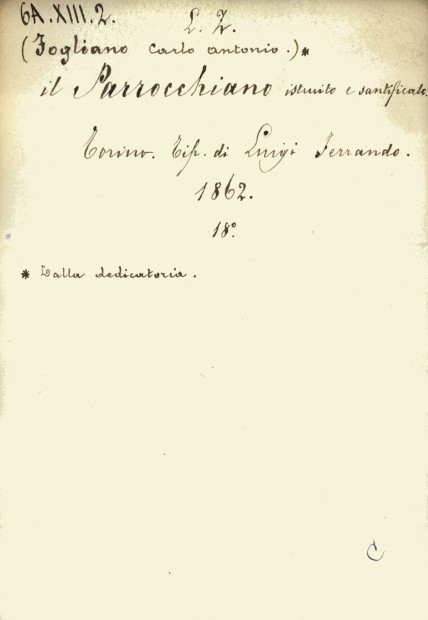 6A.XIII.2.
L. Z.
(Fogliano Carlo Antonio.)*
il Parrocchiano istruito e santificato.
Torino. Tip. di Luigi Ferrando.
1862.
18°.
* Dalla dedicatoria.
C